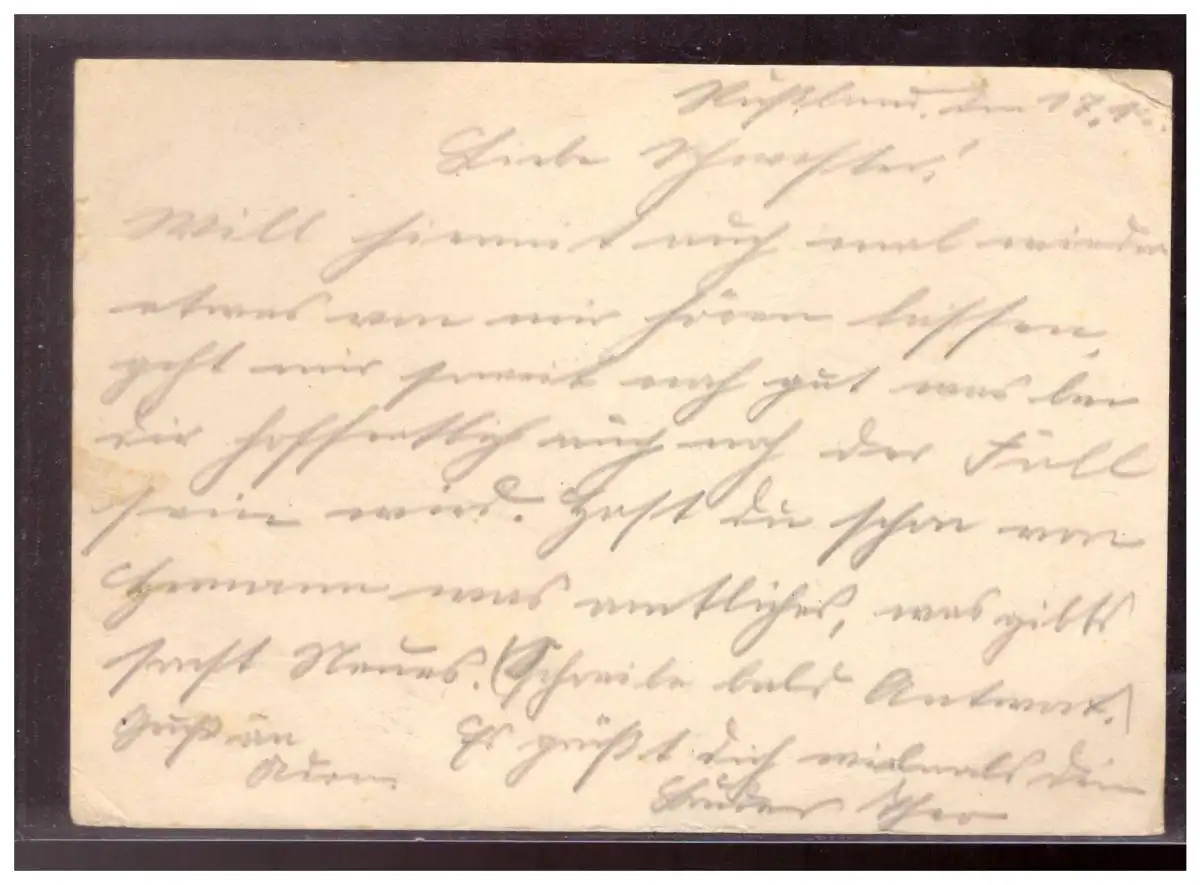 Rußland, den 17.
Liebe Schwester!
Will hiermit auch mal wieder
etwas von mir hören lassen,
geht mir soweit noch gut was bei
dir hoffentlich auch noch der Fall
sein wird. Hast du schon von
Hermann was amtliches, was gibts
sonst Neues. (Schreibe bald Antwort.)
Gruß an
Es grüßt dich vielmals dein
Bruder Theo